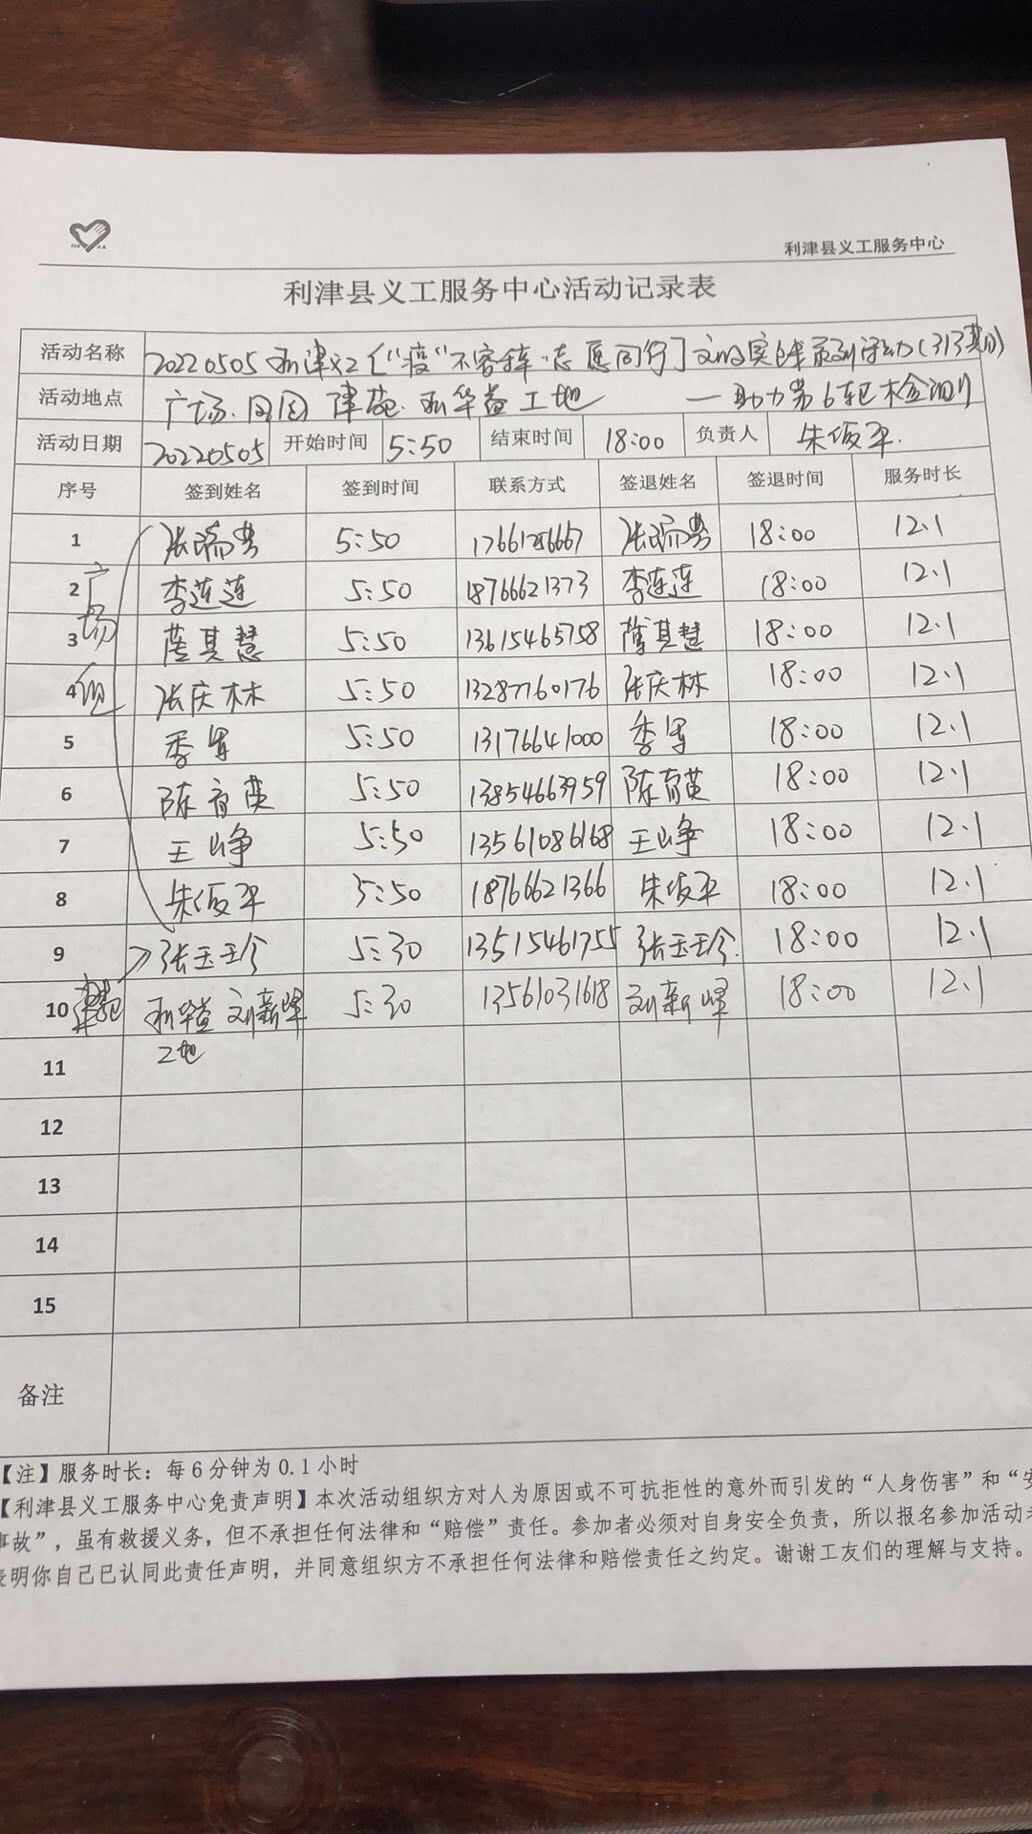 利津县义工服务中心
利津县义工服务中心活动记录表
活动名称 20220505利津义工〔“疫”不容辞·志愿同行〕文明实践系列活动(313期)
活动地点 广场. 津苑. 利华益工地 —助力第6轮核检测
活动日期 20220505 开始时间 5:50 结束时间 18:00 负责人 朱俊平.
序号 签到姓名 签到时间 联系方式 签退姓名 签退时间 服务时长
1 张瑞 5:50 张瑞 18:00 12.1
2 李莲莲 5:50 18766621373 李莲莲 18:00 12.1
3 其慧 5:50 13615465758 其慧 18:00 12.1
4 张庆林 5:50 13287760176 张庆林 18:00 12.1
广场组
5 季军 5:50 13176641000 季军 18:00 12.1
6 陈育英 5:50 13854663959 陈育英 18:00 12.1
7 王峥 5:50 13561086168 王峥 18:00 12.1
8 朱俊平 5:50 18766621366 朱俊平 18:00 12.1
9 张玉珍 5:30 13515461755 张玉珍. 18:00 12.1
10 津苑 利华益 刘新峰 5:30 13561031618 刘新峰 18:00 12.1
工地
11
12
13
14
15
备注
【注】服务时长：每6分钟为0.1小时
【利津县义工服务中心免责声明】本次活动组织方对人为原因或不可抗拒性的意外而引发的“人身伤害”和“安
事故”，虽有救援义务，但不承担任何法律和“赔偿”责任。参加者必须对自身安全负责，所以报名参加活动者
表明你自己已认同此责任声明，并同意组织方不承担任何法律和赔偿责任之约定。谢谢工友们的理解与支持。